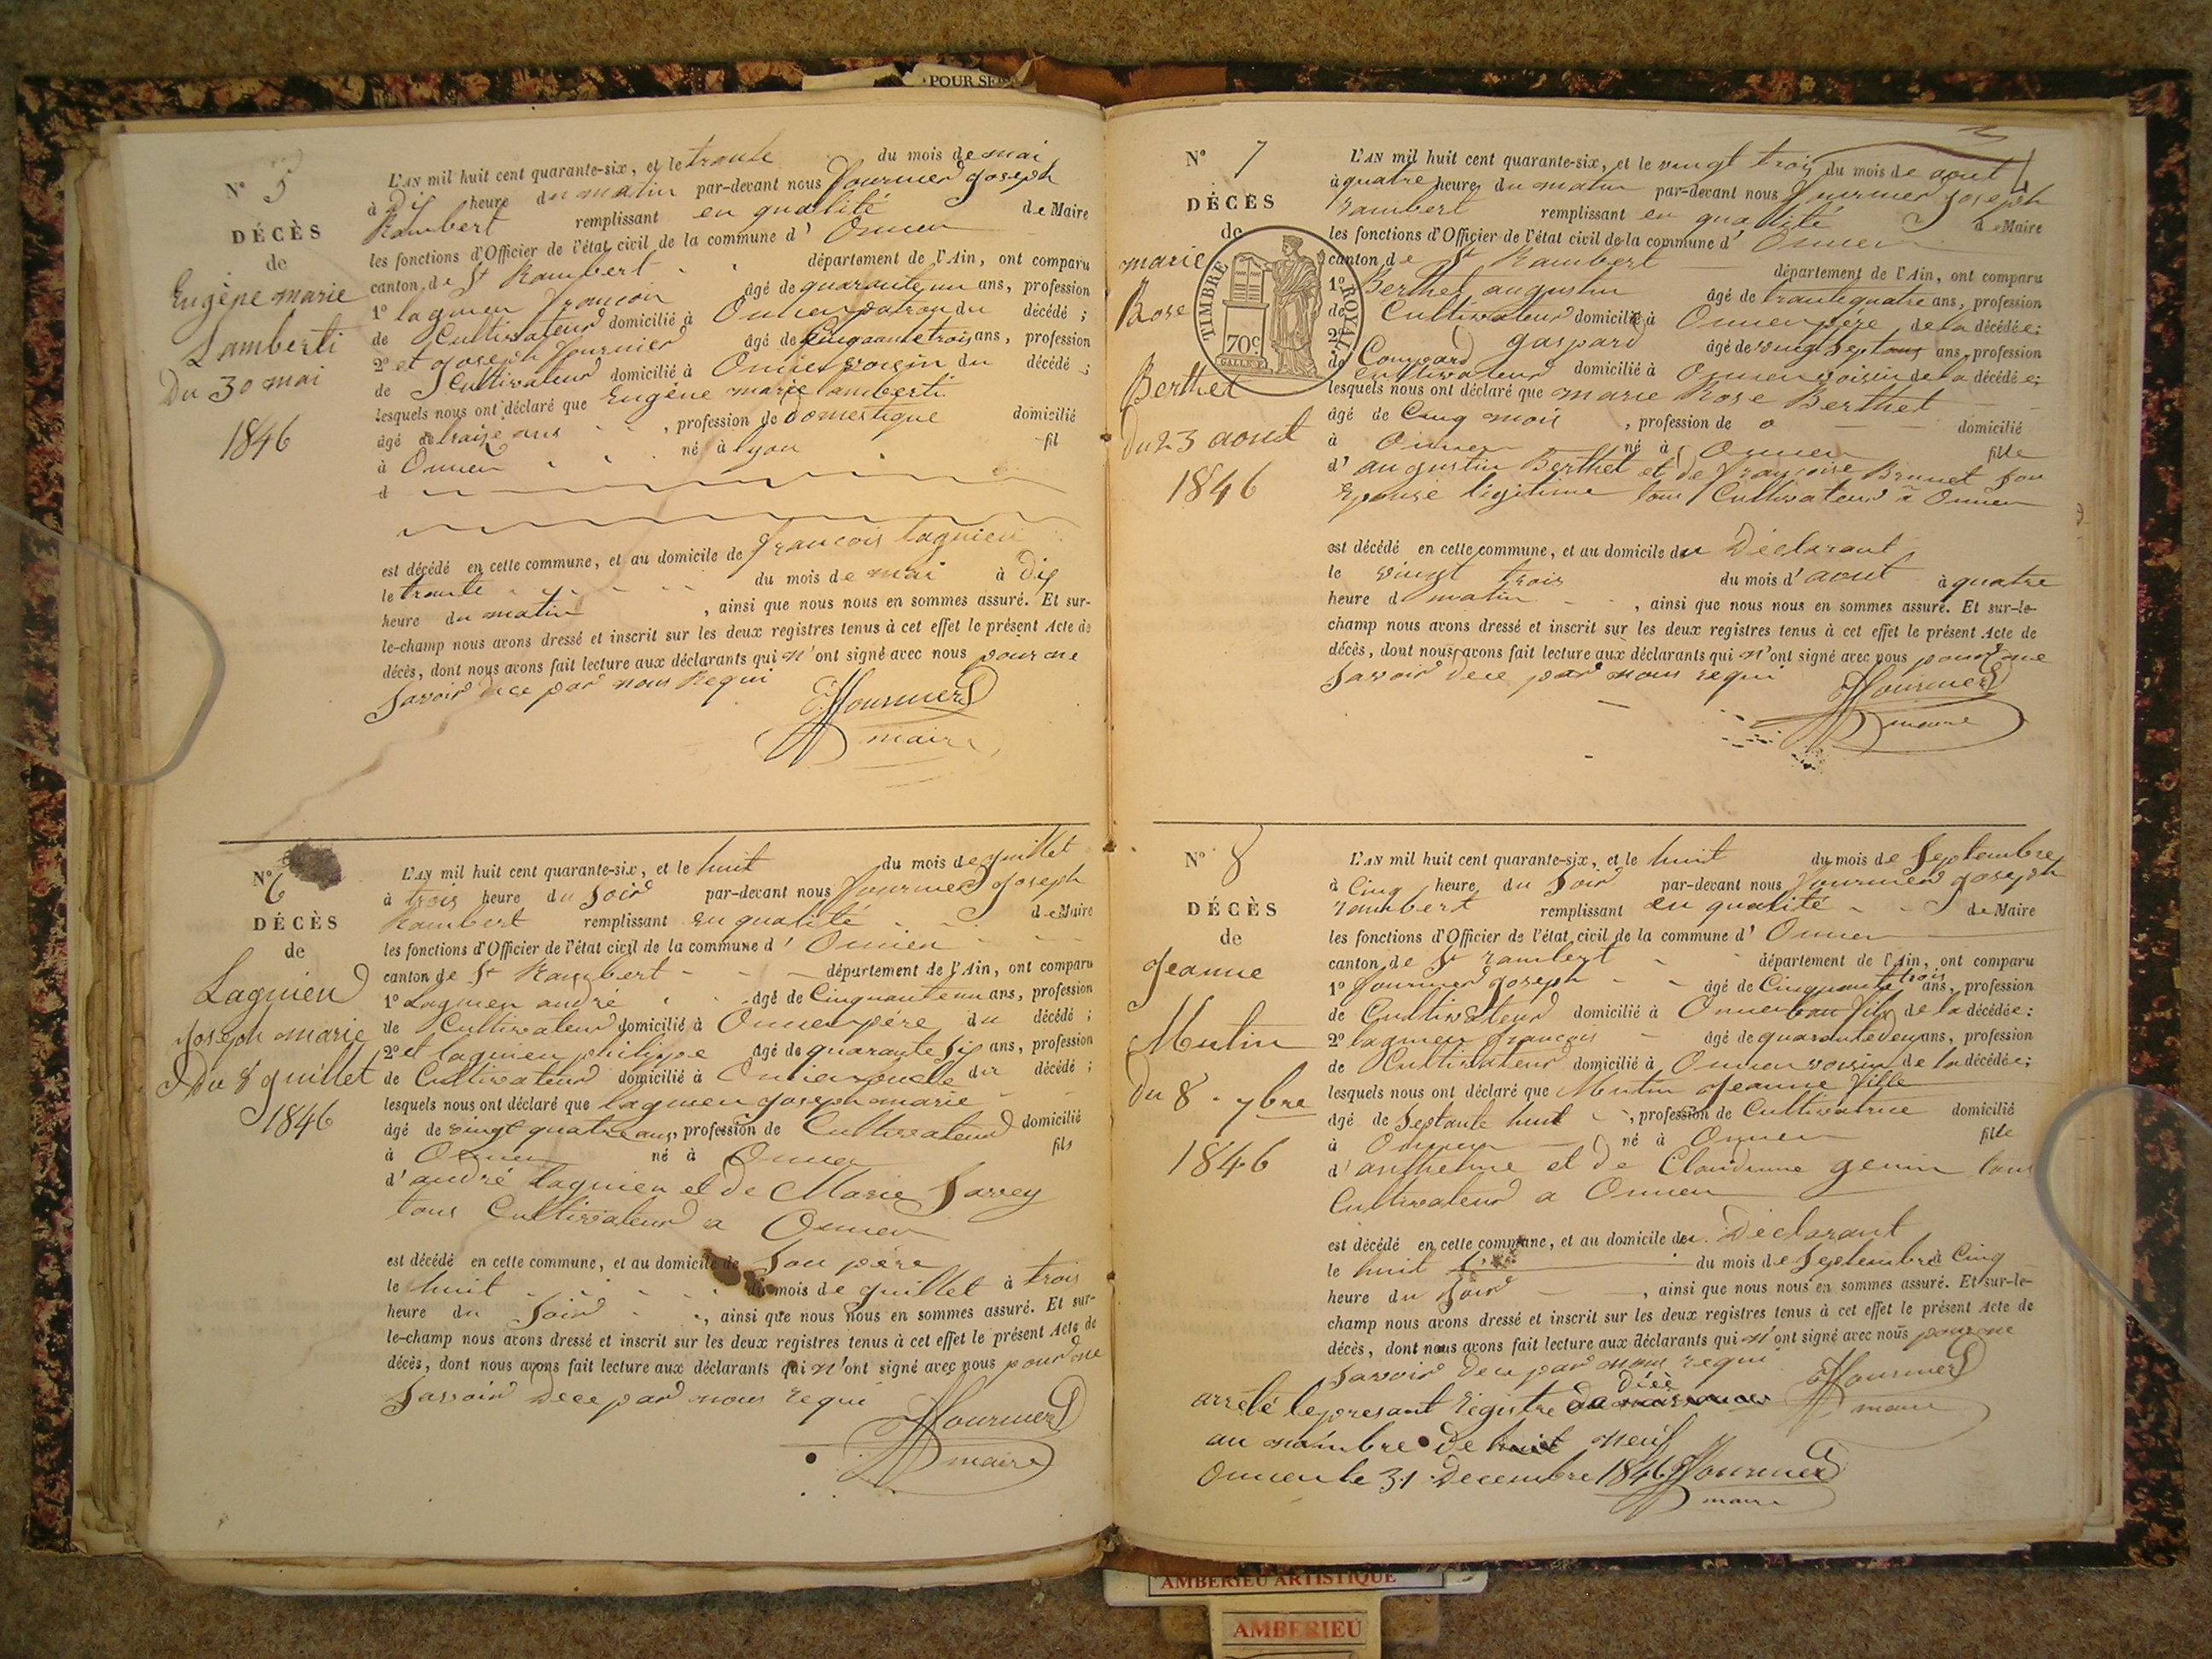 POUR SE
N° 5
DÉCÈS
de
Eugène marie
Lamberti
Du 30 mai
1846
L'AN mil huit cent quarante-six, et le trante du mois de mai
à Dix heure du matin par-devant nous fournier Joseph
Rambert remplissant en qualité de Maire
les fonctions d'Officier de l'état civil de la commune d' Oncieu
canton de St Rambert département de l'Ain, ont comparu
1° lagnieu francois âgé de quarante un ans, profession
de Cultivateur domicilié à Oncieu patron du décédé ;
2° et joseph fournier âgé de Cinquante trois ans, profession
de Cultivateur domicilié à Oncieu voisin du décédé ;
lesquels nous ont déclaré que Eugène marie lamberti
âgé de traize ans , profession de domestique domicilié
à Oncieu né à lyon fil
d
est décédé en cette commune, et au domicile de francois lagnieu
le trante du mois de mai à Dix
heure du matin , ainsi que nous nous en sommes assuré. Et sur-
le-champ nous avons dressé et inscrit sur les deux registres tenus à cet effet le présent Acte de
décès, dont nous avons fait lecture aux déclarants qui n'ont signé avec nous pour ne
Savoir de ce par nous Requi
Fournier
maire
N° 6
DÉCÈS
de
Lagnieu
Joseph marie
Du 8 juillet
1846
L'AN mil huit cent quarante-six, et le huit du mois de juillet
à trois heure du Soir par-devant nous fournier Joseph
Rambert remplissant en qualité de Maire
les fonctions d'Officier de l'état civil de la commune d' Oncieu
canton de St Rambert département de l'Ain, ont comparu
1° Lagnieu andré âgé de Cinquante un ans, profession
de Cultivateur domicilié à Oncieu père du décédé ;
2° et lagnieu philippe âgé de quarante six ans, profession
de Cultivateur domicilié à Oncieu oncle du décédé ;
lesquels nous ont déclaré que lagnieu joseph marie
âgé de vingt quatre ans, profession de Cultivateur domicilié
à Oncieu né à Oncieu fils
d'andré lagnieu et de Marie Savey
tous Cultivateur a Oncieu
est décédé en cette commune, et au domicile de Son père
le huit du mois de juillet à trois
heure du Soir , ainsi que nous nous en sommes assuré. Et sur-
le-champ nous avons dressé et inscrit sur les deux registres tenus à cet effet le présent Acte de
décès, dont nous avons fait lecture aux déclarants qui n'ont signé avec nous pour ne
Savoir de ce par nous requi
Fournier
maire
N° 7
DÉCÈS
de
marie
Rose
Berthet
Du 23 aout
1846
TIMBRE ROYAL
70c.
L'AN mil huit cent quarante-six, et le vingt trois du mois de aout
à quatre heure du matin par-devant nous fournier Joseph
rambert remplissant en qualité de Maire
les fonctions d'Officier de l'état civil de la commune d' Oncieu
canton de St Rambert département de l'Ain, ont comparu
1° Berthet augustin âgé de trante quatre ans, profession
de Cultivateur domicilié à Oncieu père de la décédée;
2° gaspard âgé de vingt sept ans, profession
de Cultivateur domicilié à Oncieu voisin de la décédée;
lesquels nous ont déclaré que marie Rose Berthet
âgé de Cinq mois , profession de o domicilié
à Oncieu né à Oncieu fille
d' augustin Berthet et de françoise Brunet son
Epouse légitime tous Cultivateur à Oncieu
est décédé en cette commune, et au domicile du Déclarant
le vingt trois du mois d'aout à quatre
heure d matin , ainsi que nous nous en sommes assuré. Et sur-le-
champ nous avons dressé et inscrit sur les deux registres tenus à cet effet le présent Acte de
décès, dont nous avons fait lecture aux déclarants qui n'ont signé avec nous pour ne
Savoir de ce par nous requi
Fournier
maire
N° 8
DÉCÈS
de
Jeanne
Mutin
Du 8 7bre
1846
L'AN mil huit cent quarante-six, et le huit du mois de Septembre
à Cinq heure du Soir par-devant nous fournier joseph
rambert remplissant en qualité de Maire
les fonctions d'Officier de l'état civil de la commune d' Oncieu
canton de St rambert département de l'Ain, ont comparu
1° fournier Joseph âgé de Cinquante trois ans, profession
de Cultivateur domicilié à Oncieu beau fils de la décédée;
2° lagnieu francois âgé de quarante deux ans, profession
de Cultivateur domicilié à Oncieu voisin de la décédée;
lesquels nous ont déclaré que Mutin Jeanne fille
âgé de Septante huit , profession de Cultivatrice domicilié
à Oncieu né à Oncieu fille
d'anthelme et de Claudine genin tous
Cultivateur a Oncieu
est décédé en cette commune, et au domicile du Déclarant
le huit du mois de Septembre à Cinq
heure du Soir , ainsi que nous nous en sommes assuré. Et sur-le-
champ nous avons dressé et inscrit sur les deux registres tenus à cet effet le présent Acte de
décès, dont nous avons fait lecture aux déclarants qui n'ont signé avec nous pour ne
Savoir de ce par nous requi
Fournier
maire
arrêté le présant registre
au nombre de neuf
Oncieu le 31 Decembre 1846 Fournier
maire
AMBERIEU ARTISTIQUE
AMBERIEU